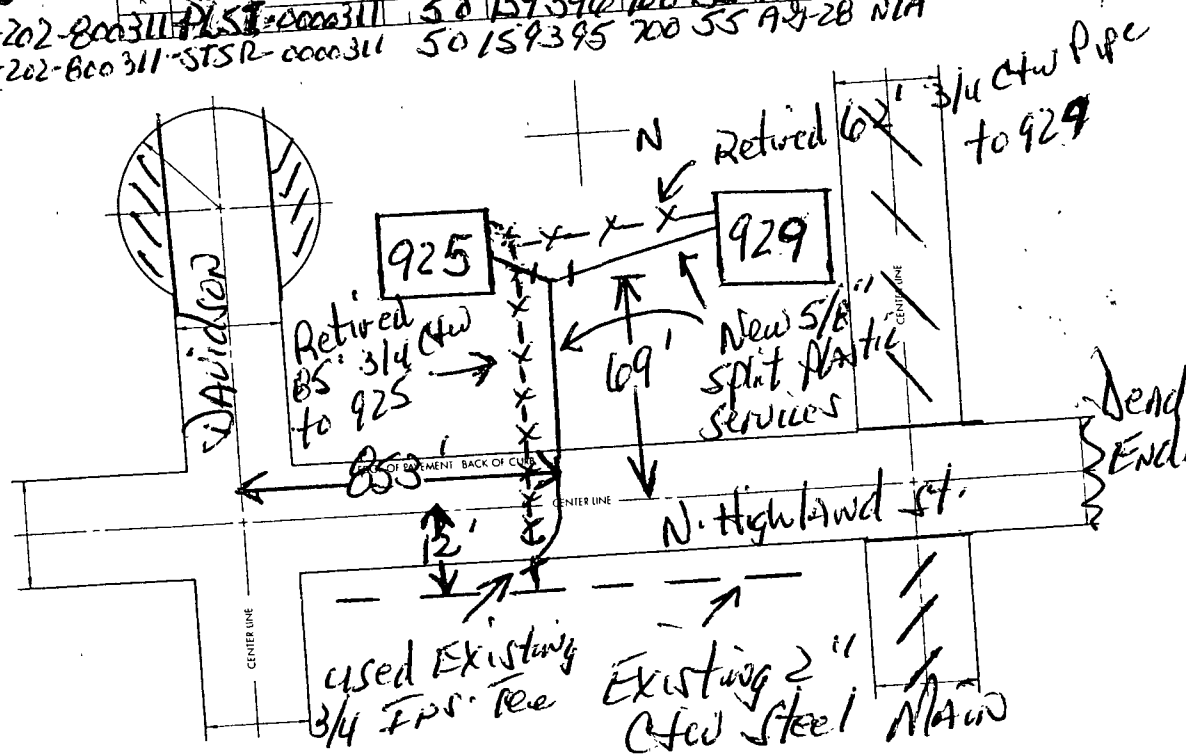 -202-800311-PLST-0000311 50159396 700
-202-800311-STSR-0000311 50159395 700 55 A98-28 N/A
N
Retired 62' 3/4 C+W Pipe
to 929
925
929
Davidson
Retired
85' 3/4 C+W
to 925
69'
New 5/8"
Split Plastic
Services
CENTER LINE
EDGE OF PAVEMENT BACK OF CURB
853'
CENTER LINE
N. Highland St.
Dead
End
12'
CENTER LINE
used Existing
3/4 IPS Tee
Existing 2"
C+W Steel Main